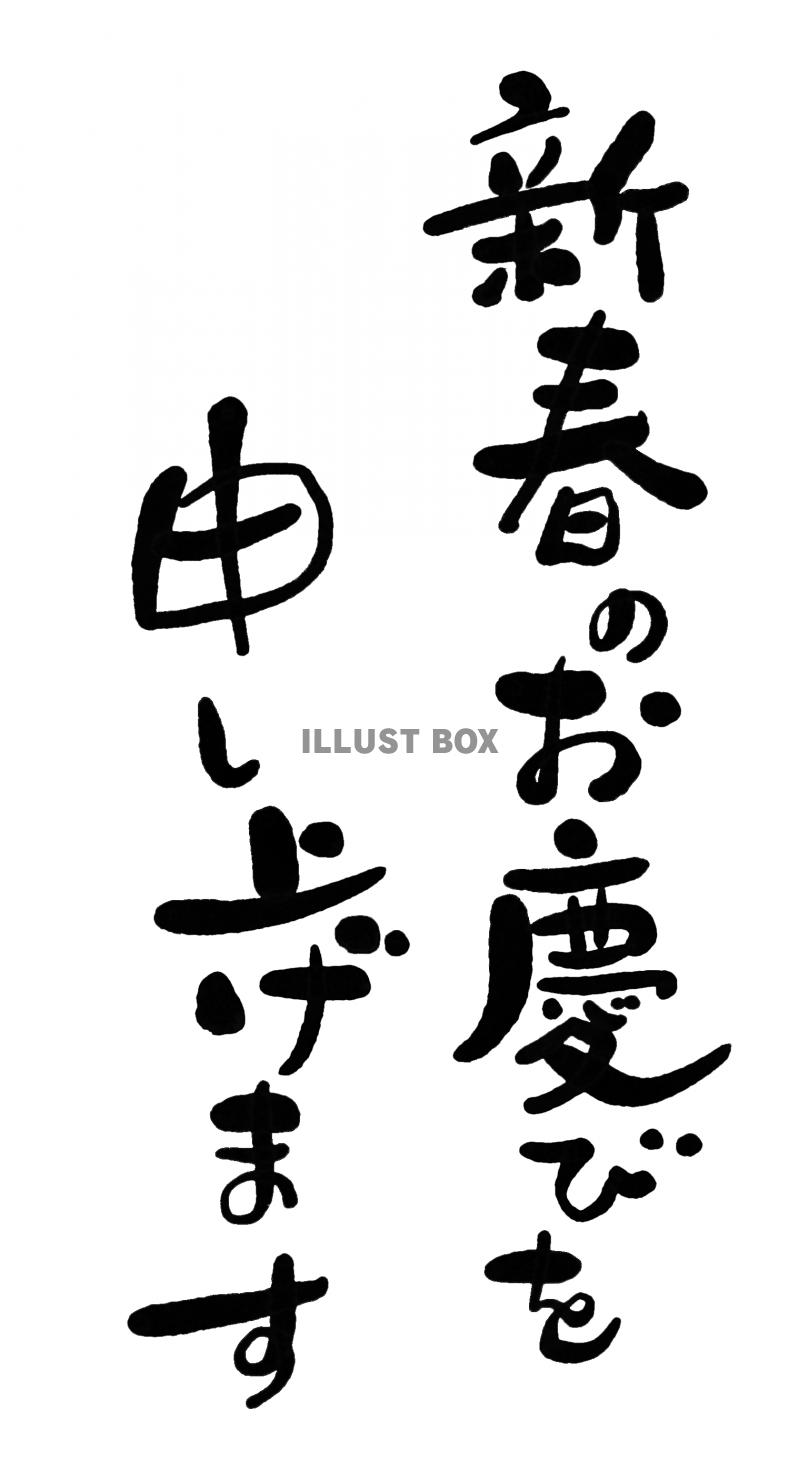 新春のお慶びを
申し上げます
ILLUST BOX